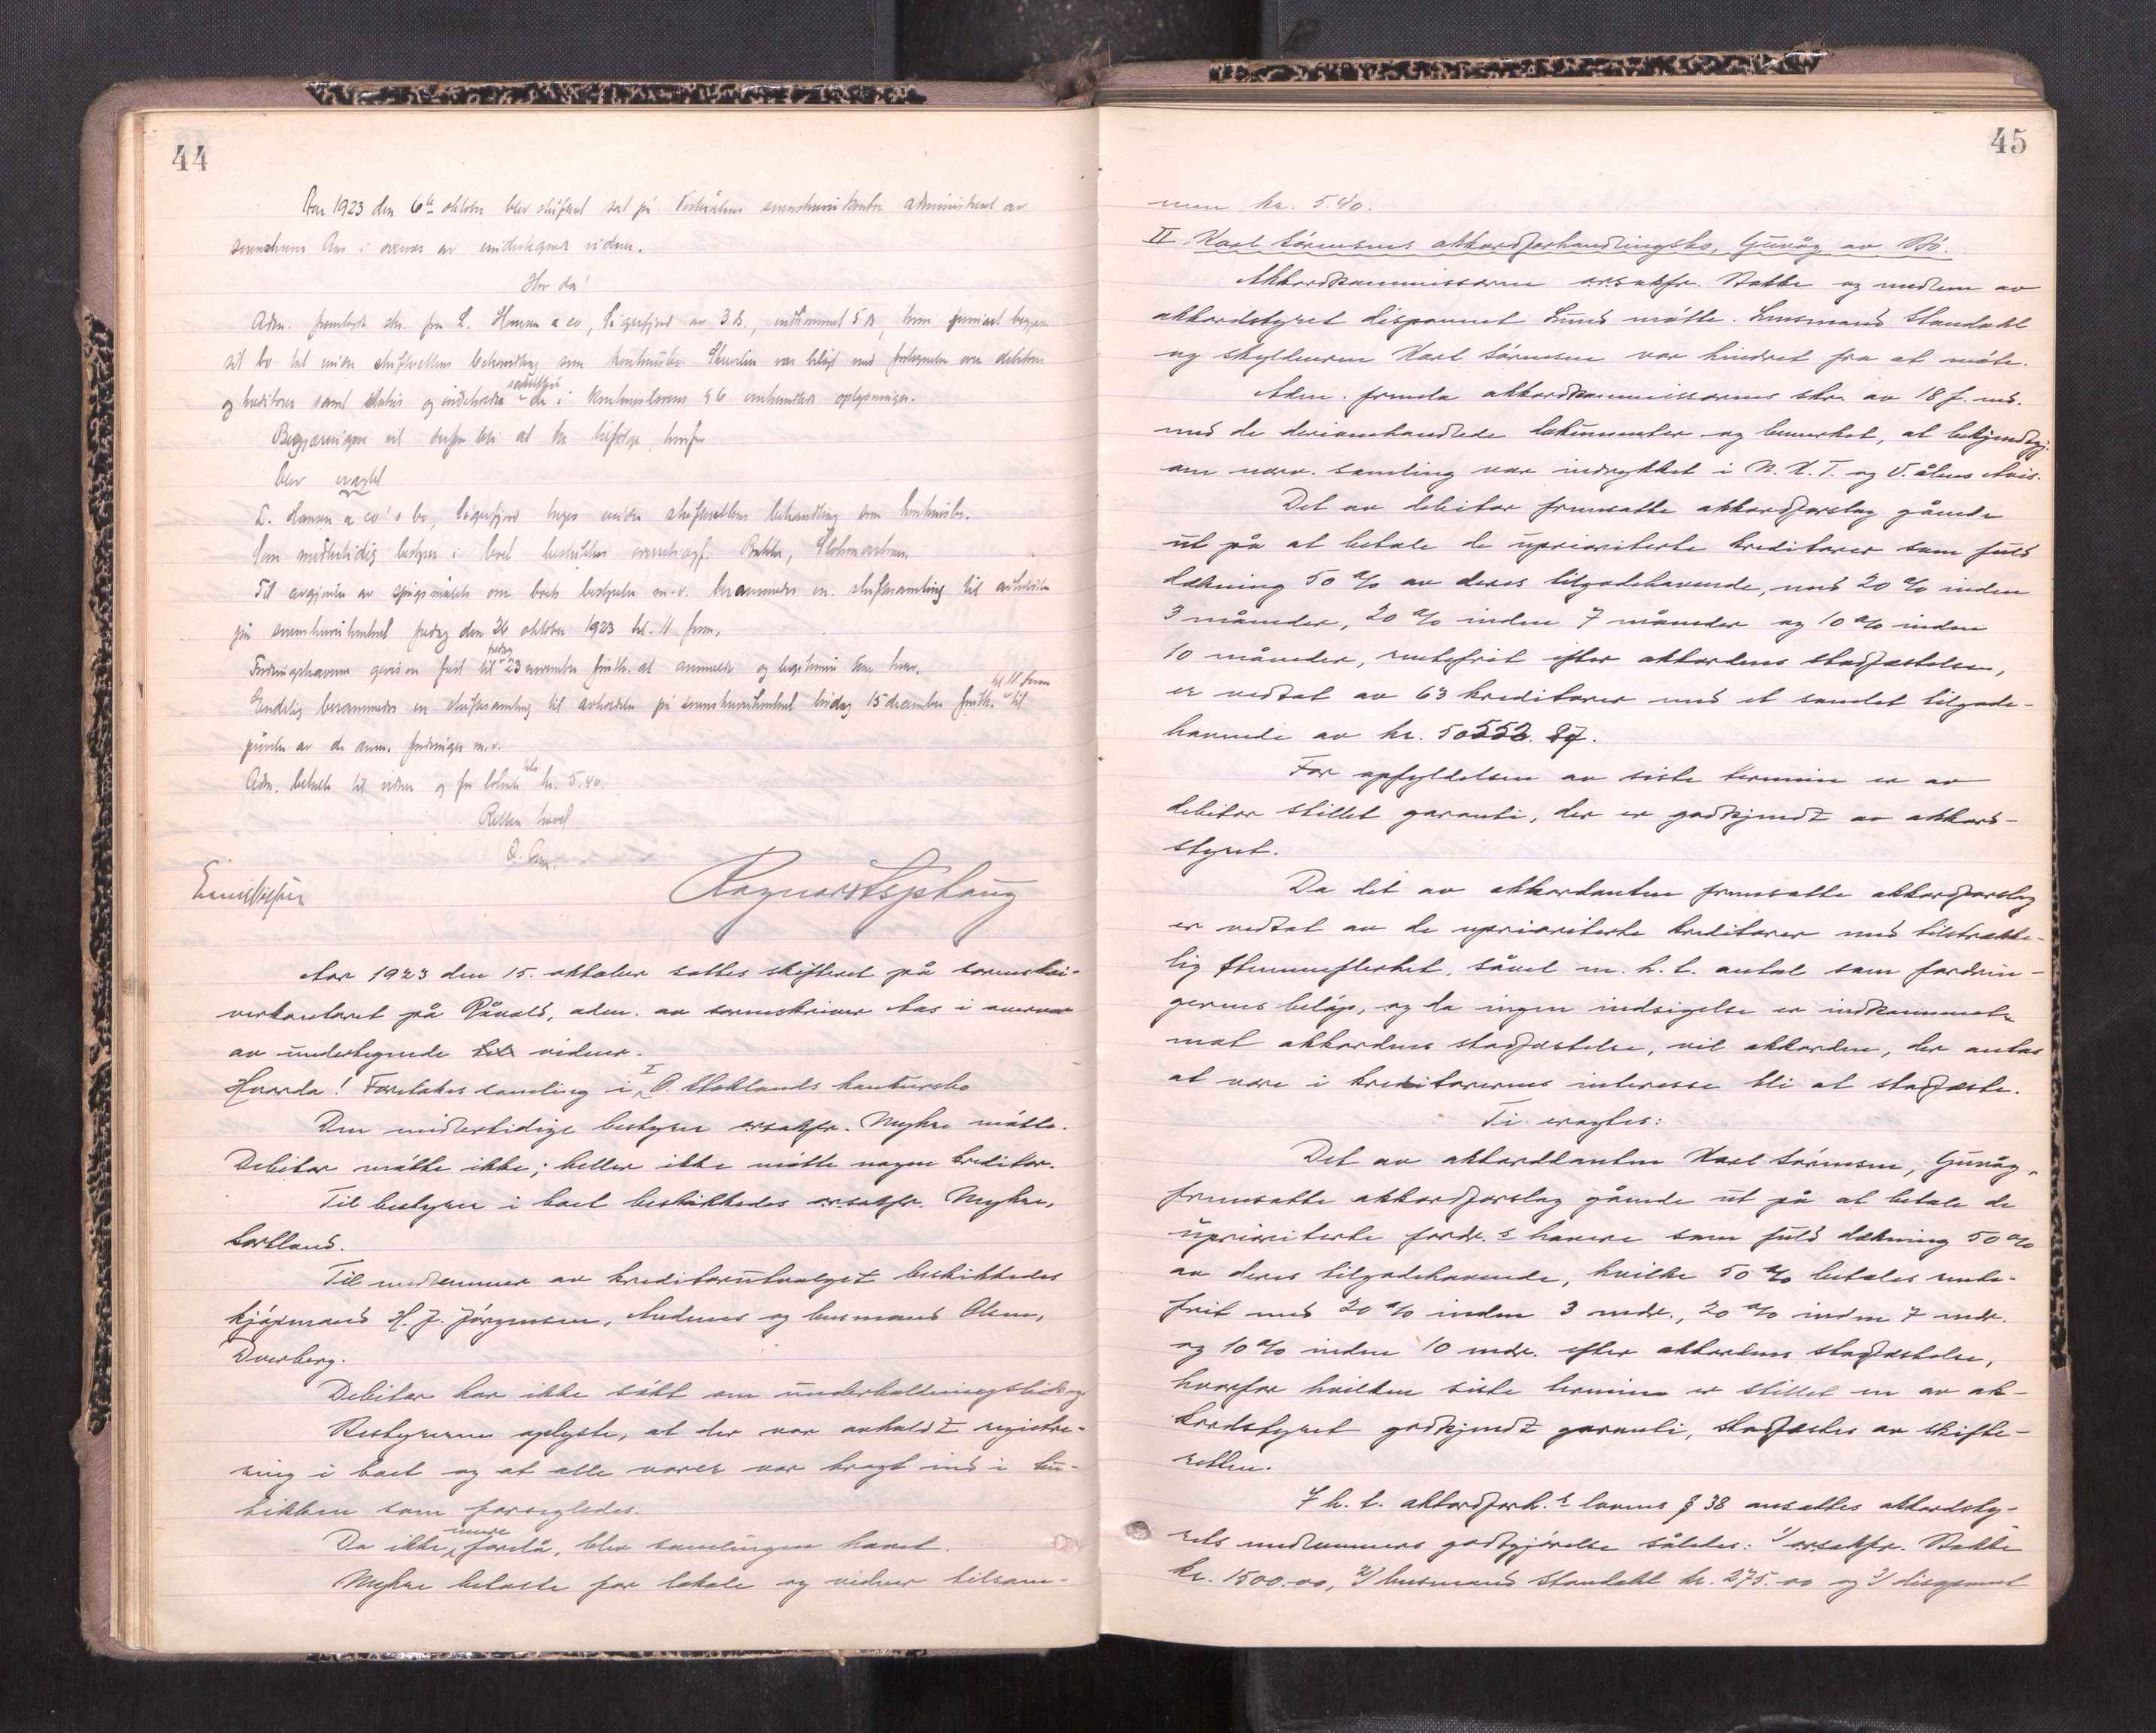 44
Aar 1923 den 6te oktober blev skifteret sat på Vesterålens sorenskriverkontor, administrert av
sorenskriver Aas i overvær av undertegnede vidner.
Hvor da!
Adm. fremlagde skr. fra L. Hansen & co, Sigerfjord av 3 ds., indkommet 5 ds, hvori firmaet begjærer
sit bo tat under skifterettens behandling som konkursbo. Skrivelsen var bilagt med fortegnelse over debitorer
og kreditorer samt status og indeholder de i konkurslovens § 6 omhandlede oplysninger.
Begjæringen vil derfor bli at ta tilfølge, hvorfor
blev eragtet
L. Hansen & co's bo, Sigerfjord tages under skifterettens behandling som konkursbo.
Som midlertidig bestyrer i boet beskikkes overretssagf. Stokke, Stokmarknes.
Til avgjørelse av spørgsmålet om boets bestyrelse m.v. berammedes en skiftesamling til avholdelse
på sorenskriverkontoret fredag den 26 oktober 1923 kl. 11 form.
Fordringshaverne gives en frist til fredag 23 november førstk. at anmelde og legitimere sine krav.
Endelig berammedes en skiftesamling til avholdelse på sorenskriverkontoret lørdag 15 december førstk. kl. 11 form til
prøvelse av de anm. fordringer m.v.
Adm. betalte til vidner og for lokale tils kr. 5.40.
Retten hævet
O. Aas.
Ragnar
Aar 1923 den 15. oktober sattes skifteret på sorenskri-
verkontoret på Råvold, adm. av sorenskriver Aas i overvær
av undertegnede vidner.
Hvorda! Foretokes samling i I O. Stoklands konkursbo
Den midlertidige bestyrer o.r.sakfr. Myhre møtte.
Debitor møtte ikke; heller ikke møtte nogen kreditor.
Til bestyrer i boet beskikkedes o.r.sakfr. Myhre,
Sortland.
Til medlemmer av kreditorutvalget beskikkedes
kjøpmand H. J. Jørgensen, Andenes og lensmand Olsen,
Dverberg.
Debitor har ikke søkt om underholdningsbidrag
Bestyreren oplyste, at der var avholdt registre-
ring i boet og at alle varer var bragt ind i bu-
tikken som forsegledes.
Da ikke mere forelå, blev samlingen hævet.
Myhre betalte for lokale og vidner tilsam-
45
men kr. 5.40.
II. Karl Sørensens akkordforhandlingsbo, Guvåg av Bø.
Akkordkommissæren o.r.sakfr. Stokke og medlem av
akkordstyret disponent Lund møtte. Lensmand Standahl
og skyldneren Karl Sørensen var hindret fra at møte.
Adm. fremla akkordkommissærens skr. av 18 f. md.
med de deriomhandlede dokumenter og bemerket, at bekjendtgj.
om nærv. samling var indrykket i N. K. T. og V.ålens Avis.
Det av debitor fremsatte akkordforslag gående
ut på at betale de uprioriterte kreditorer som fuld
dækning 50 % av deres tilgodehavende, med 20 % inden
3 måneder, 20 % inden 7 måneder og 10 % inden
10 måneder, rentefrit efter akkordens stadfæstelse,
er vedtat av 63 kreditorer med et samlet tilgode-
havende av kr. 50552.87.
For opfyldelsen av siste termin er av
debitor stillet garanti, der er godkjendt av akkord-
styret.
Da det av akkordanten fremsatte akkordforslag
er vedtat av de uprioriterte kreditorer med tilstrække-
lig stemmeflerhet, såvel m. h. t. antal som fordrin-
gernes beløp, og da ingen indsigelse er indkommet
mot akkordens stadfæstelse, vil akkorden, der antas
at være i kreditorernes interesse bli at stadfæste.
Ti eragtes:
Det av akkordanten Karl Sørensen, Guvåg,
fremsatte akkordforslag gående ut på at betale de
uprioriterte fordr.s havere som fuld dækning 50 %
av deres tilgodehavende, hvilke 50 % betales rente-
frit med 20 % inden 3 mdr., 20 % inden 7 mdr.
og 10 % inden 10 mdr. efter akkordens stadfæstelse,
hvorfor hvilken siste termin er stillet en av ak-
kordstyret godkjendt garanti, stadfæstes av skifte-
retten.
I h. t. akkordforh.s lovens § 38 ansattes akkordsty-
rets medlemmers godtgjørelse således: 1/ o.r.sakfr. Stokke
kr. 1500.00, 2/ lensmand Standahl kr. 275.00 og 3/ disponent